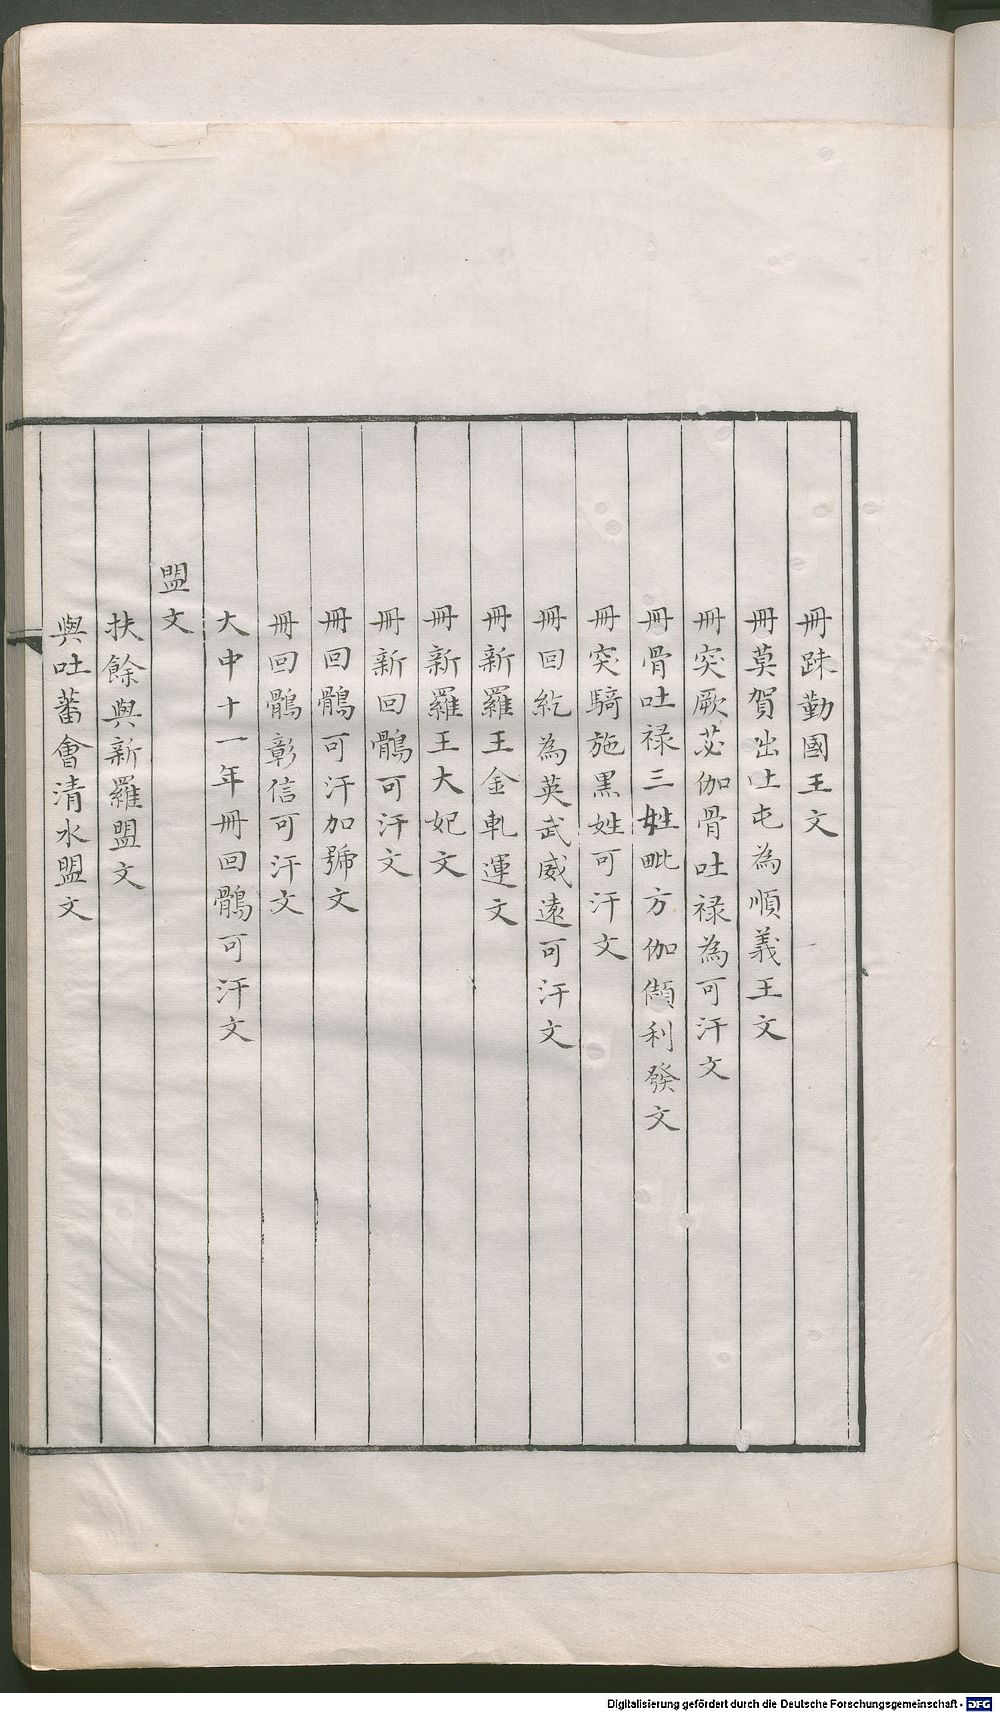 冊䟽勤國王文
冊莫賀咄吐屯為順義王文
冊突厥苾伽骨吐禄為可汗文
冊骨吐禄三姓毗方伽頡利發文
冊突騎施黒姓可汗文
冊回紇為英武威遠可汗文
冊新羅王金軋運文
冊新羅王大妃文
冊新回鶻可汗文
冊回鶻可汗加號文
冊回鶻彰信可汗文
大中十一年冊回鶻可汗文
盟文
扶餘與新羅盟文
與吐蕃會清水盟文
Digitalisierung gefördert durch die Deutsche Forschungsgemeinschaft - DFG